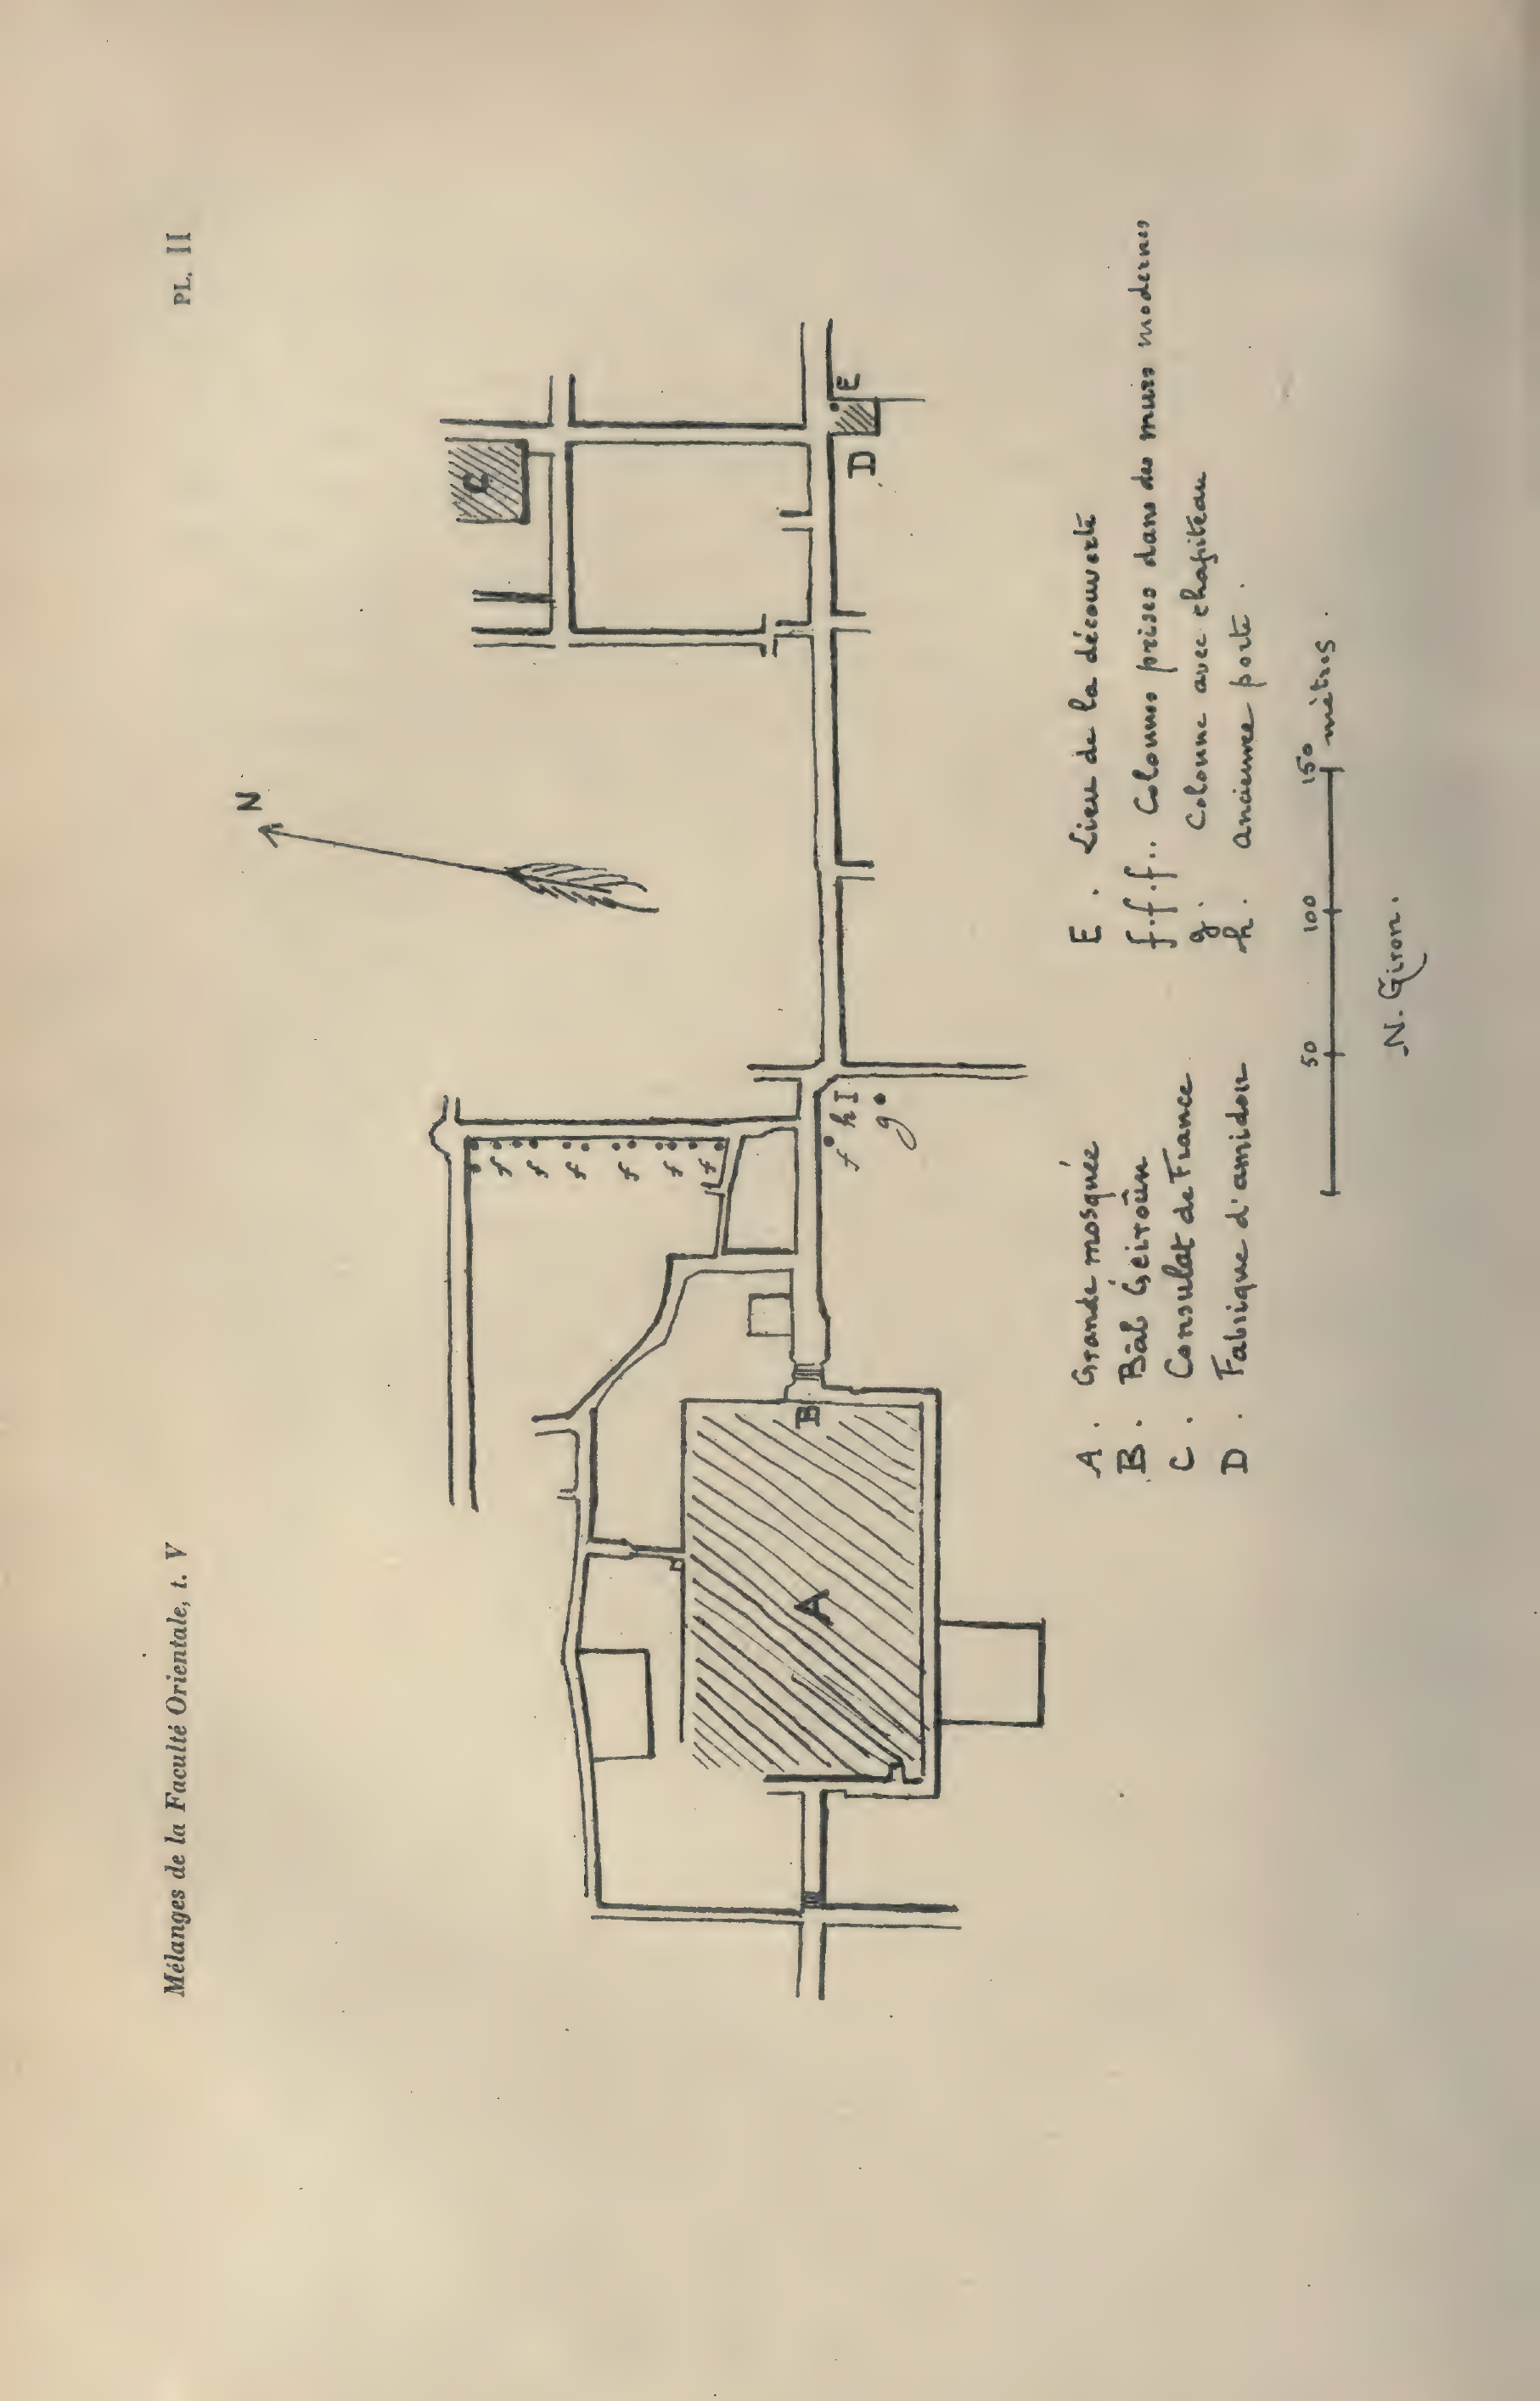 Mélanges de la Faculté Orientale, t. V
PL. II
N
C
f
f
f
f
f
f
f
h I
g
B
A
D
E
A . Grande mosquée
B . Bâb Ǵeiroûn
C . Consulat de France
D . Fabrique d'amidon
E . Lieu de la découverte
f.f.f.. Colonnes prises dans des murs modernes
g . Colonne avec chapiteau
h . ancienne porte .
50 100 150 mètres .
N. Giron .